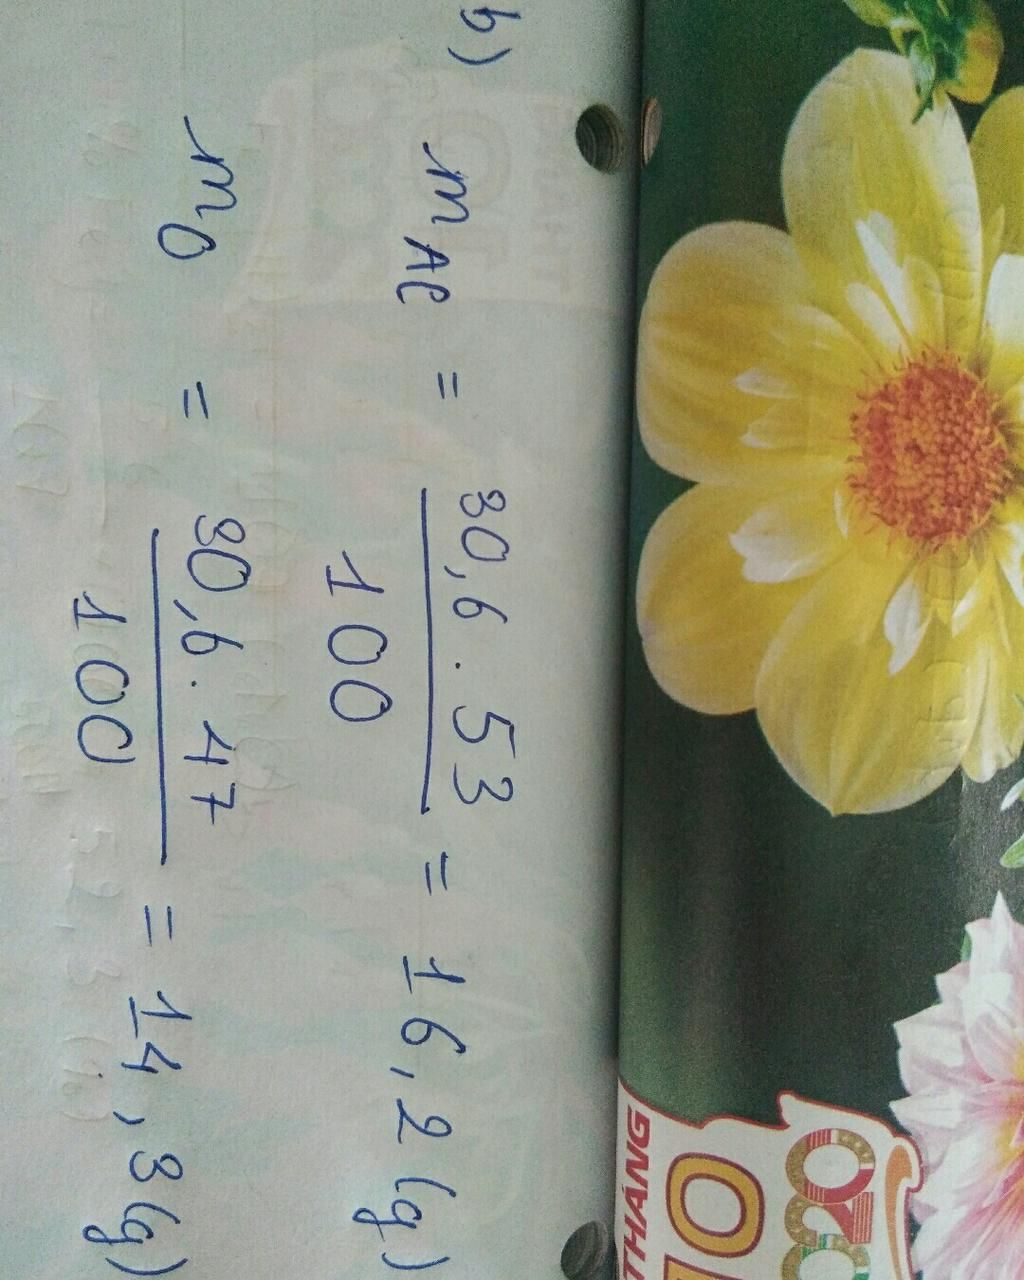 b) mAl = 30,6 . 53 / 100 = 16,2 (g)
mO = 30,6 . 47 / 100 = 14,3 (g)
THÁNG
10
2020